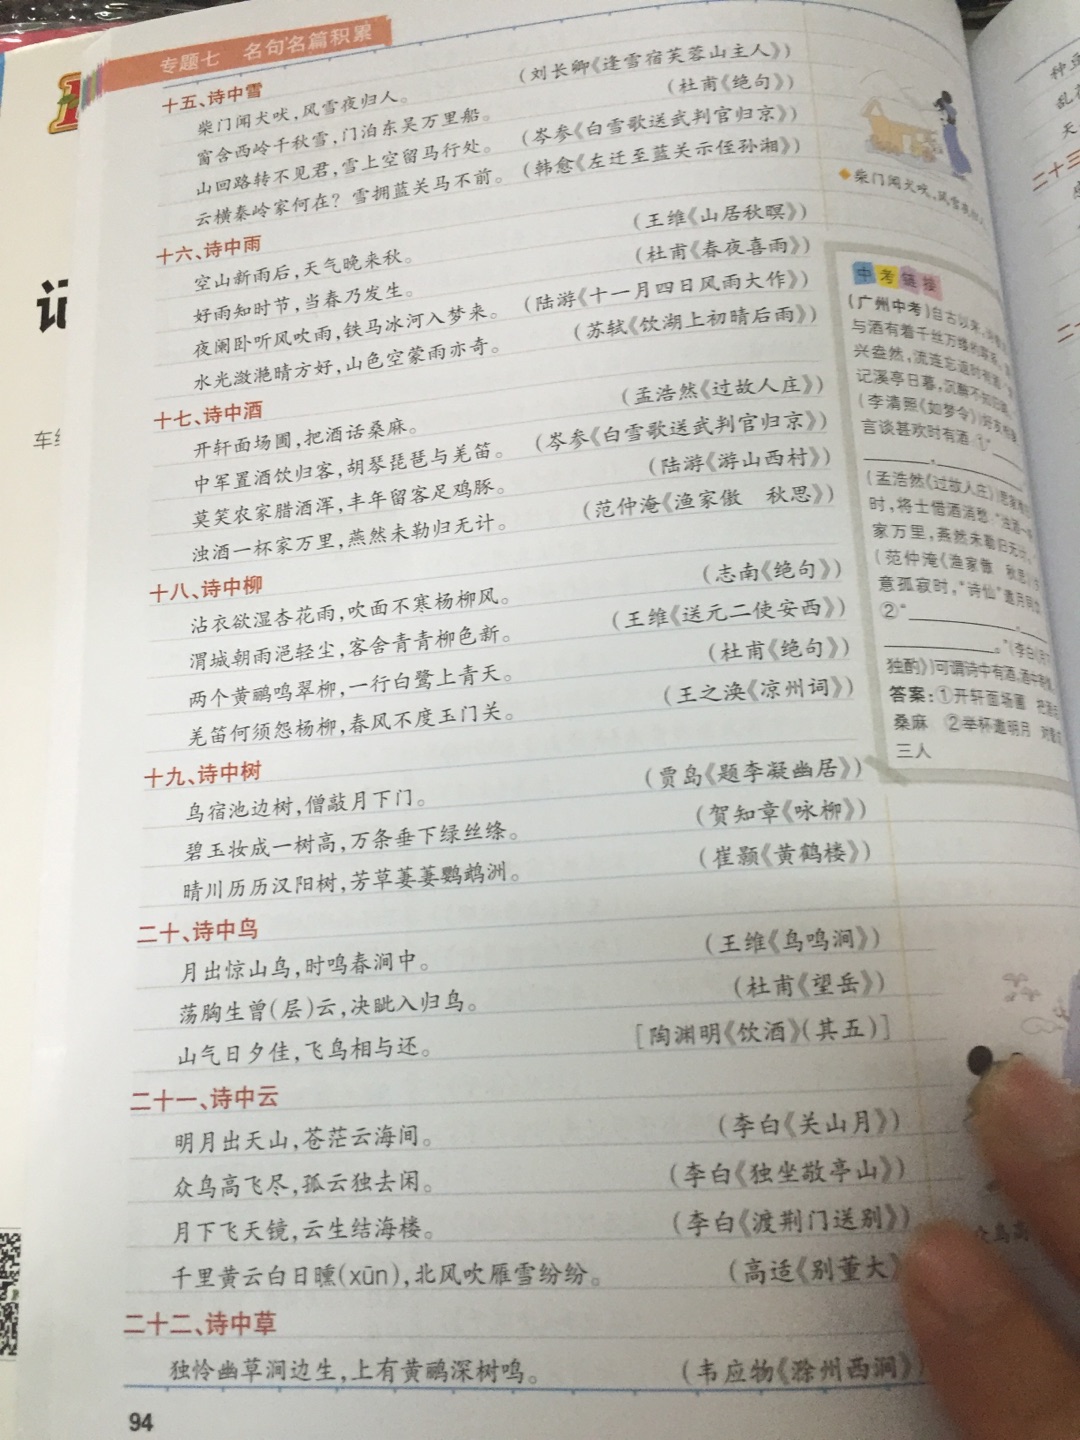 专题七 名句名篇积累
十五、诗中雪
柴门闻犬吠,风雪夜归人。 (刘长卿《逢雪宿芙蓉山主人》)
窗含西岭千秋雪,门泊东吴万里船。 (杜甫《绝句》)
山回路转不见君,雪上空留马行处。 (岑参《白雪歌送武判官归京》)
云横秦岭家何在?雪拥蓝关马不前。 (韩愈《左迁至蓝关示侄孙湘》)
十六、诗中雨
空山新雨后,天气晚来秋。 (王维《山居秋暝》)
好雨知时节,当春乃发生。 (杜甫《春夜喜雨》)
夜阑卧听风吹雨,铁马冰河入梦来。 (陆游《十一月四日风雨大作》)
水光潋滟晴方好,山色空蒙雨亦奇。 (苏轼《饮湖上初晴后雨》)
十七、诗中酒
开轩面场圃,把酒话桑麻。 (孟浩然《过故人庄》)
中军置酒饮归客,胡琴琵琶与羌笛。 (岑参《白雪歌送武判官归京》)
莫笑农家腊酒浑,丰年留客足鸡豚。 (陆游《游山西村》)
浊酒一杯家万里,燕然未勒归无计。 (范仲淹《渔家傲 秋思》)
十八、诗中柳
沾衣欲湿杏花雨,吹面不寒杨柳风。 (志南《绝句》)
渭城朝雨浥轻尘,客舍青青柳色新。 (王维《送元二使安西》)
两个黄鹂鸣翠柳,一行白鹭上青天。 (杜甫《绝句》)
羌笛何须怨杨柳,春风不度玉门关。 (王之涣《凉州词》)
十九、诗中树
鸟宿池边树,僧敲月下门。 (贾岛《题李凝幽居》)
碧玉妆成一树高,万条垂下绿丝绦。 (贺知章《咏柳》)
晴川历历汉阳树,芳草萋萋鹦鹉洲。 (崔颢《黄鹤楼》)
二十、诗中鸟
月出惊山鸟,时鸣春涧中。 (王维《鸟鸣涧》)
荡胸生曾(层)云,决眦入归鸟。 (杜甫《望岳》)
山气日夕佳,飞鸟相与还。 [陶渊明《饮酒》(其五)]
二十一、诗中云
明月出天山,苍茫云海间。 (李白《关山月》)
众鸟高飞尽,孤云独去闲。 (李白《独坐敬亭山》)
月下飞天镜,云生结海楼。 (李白《渡荆门送别》)
千里黄云白日曛(xūn),北风吹雁雪纷纷。 (高适《别董大》
二十二、诗中草
独怜幽草涧边生,上有黄鹂深树鸣。 (韦应物《滁州西涧》)
94
柴门闻犬吠,风雪夜归人
中考链接
(广州中考)自古以来,
与酒有着千丝万缕的
兴盎然,流连忘返时有酒
记溪亭日暮,沉醉不知归路
(李清照《如梦令》)好友
言谈甚欢时有酒①"
(孟浩然《过故人庄》)思家
时,将士借酒消愁,"浊酒一杯
家万里,燕然未勒归无计。
(范仲淹《渔家傲 秋思》)
意孤寂时,"诗仙"邀月同
②"
。"(李白《月下
独酌》)可谓诗中有酒,酒中有
答案:①开轩面场圃 把酒话
桑麻 ②举杯邀明月 对影成
三人
众鸟高
种豆
天
二十三
车